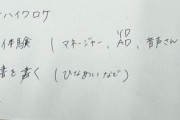 ハイワロケ
体験 ( マネージャー、 VD AD、音声さん
書を書く ( ひなめいなど )